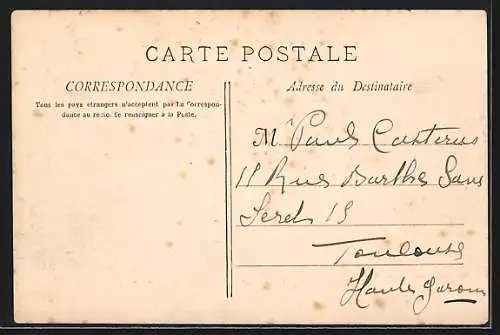 CARTE POSTALE
CORRESPONDANCE
Tous les pays étrangers n'acceptent pas la Correspon-
dance au recto. Se renseigner à la Poste.
Adresse du Destinataire
M. Paul
11 Rue Barthe Sans
15
Toulouse
Haute Garonne